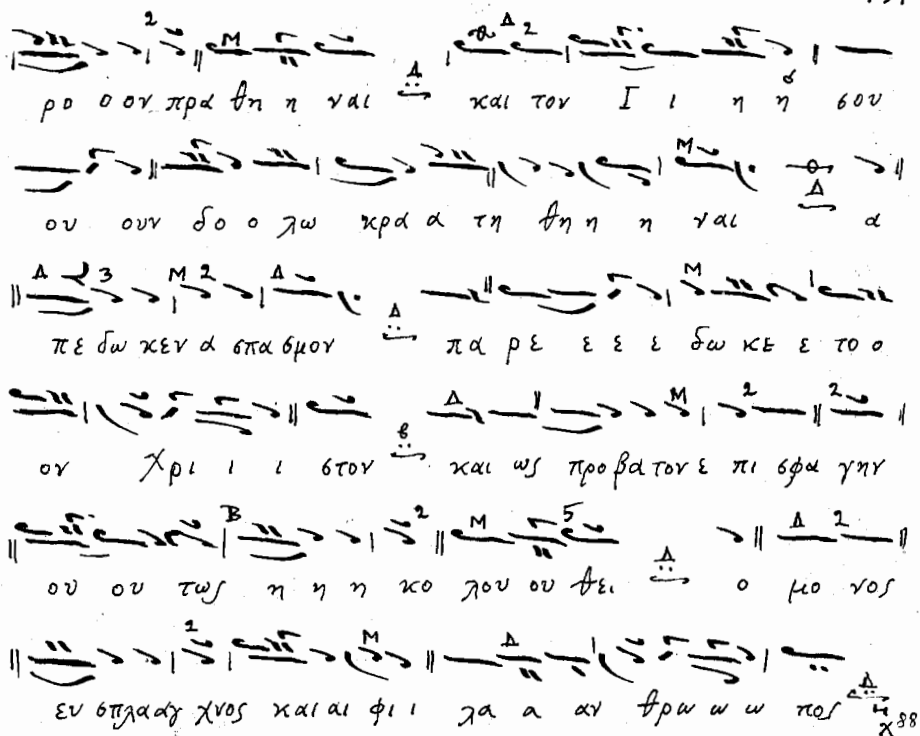 ρο ο ον πρα θη η ναι και τον Ι ι η η σου
ου ουν δο ο λω κρα α τη θη η η ναι α
πε δω κεν α σπα σμον πα ρε ε ε ε δω κε ε το ο
ον Χρι ι ι ι στον και ως προ βα τον ε πι σφα γην
ου ου τως η η η κο λου ου θει ο μο νος
ευ σπλααγ χνος και αι φι ι λα α αν θρω ω ω πος
χ 88